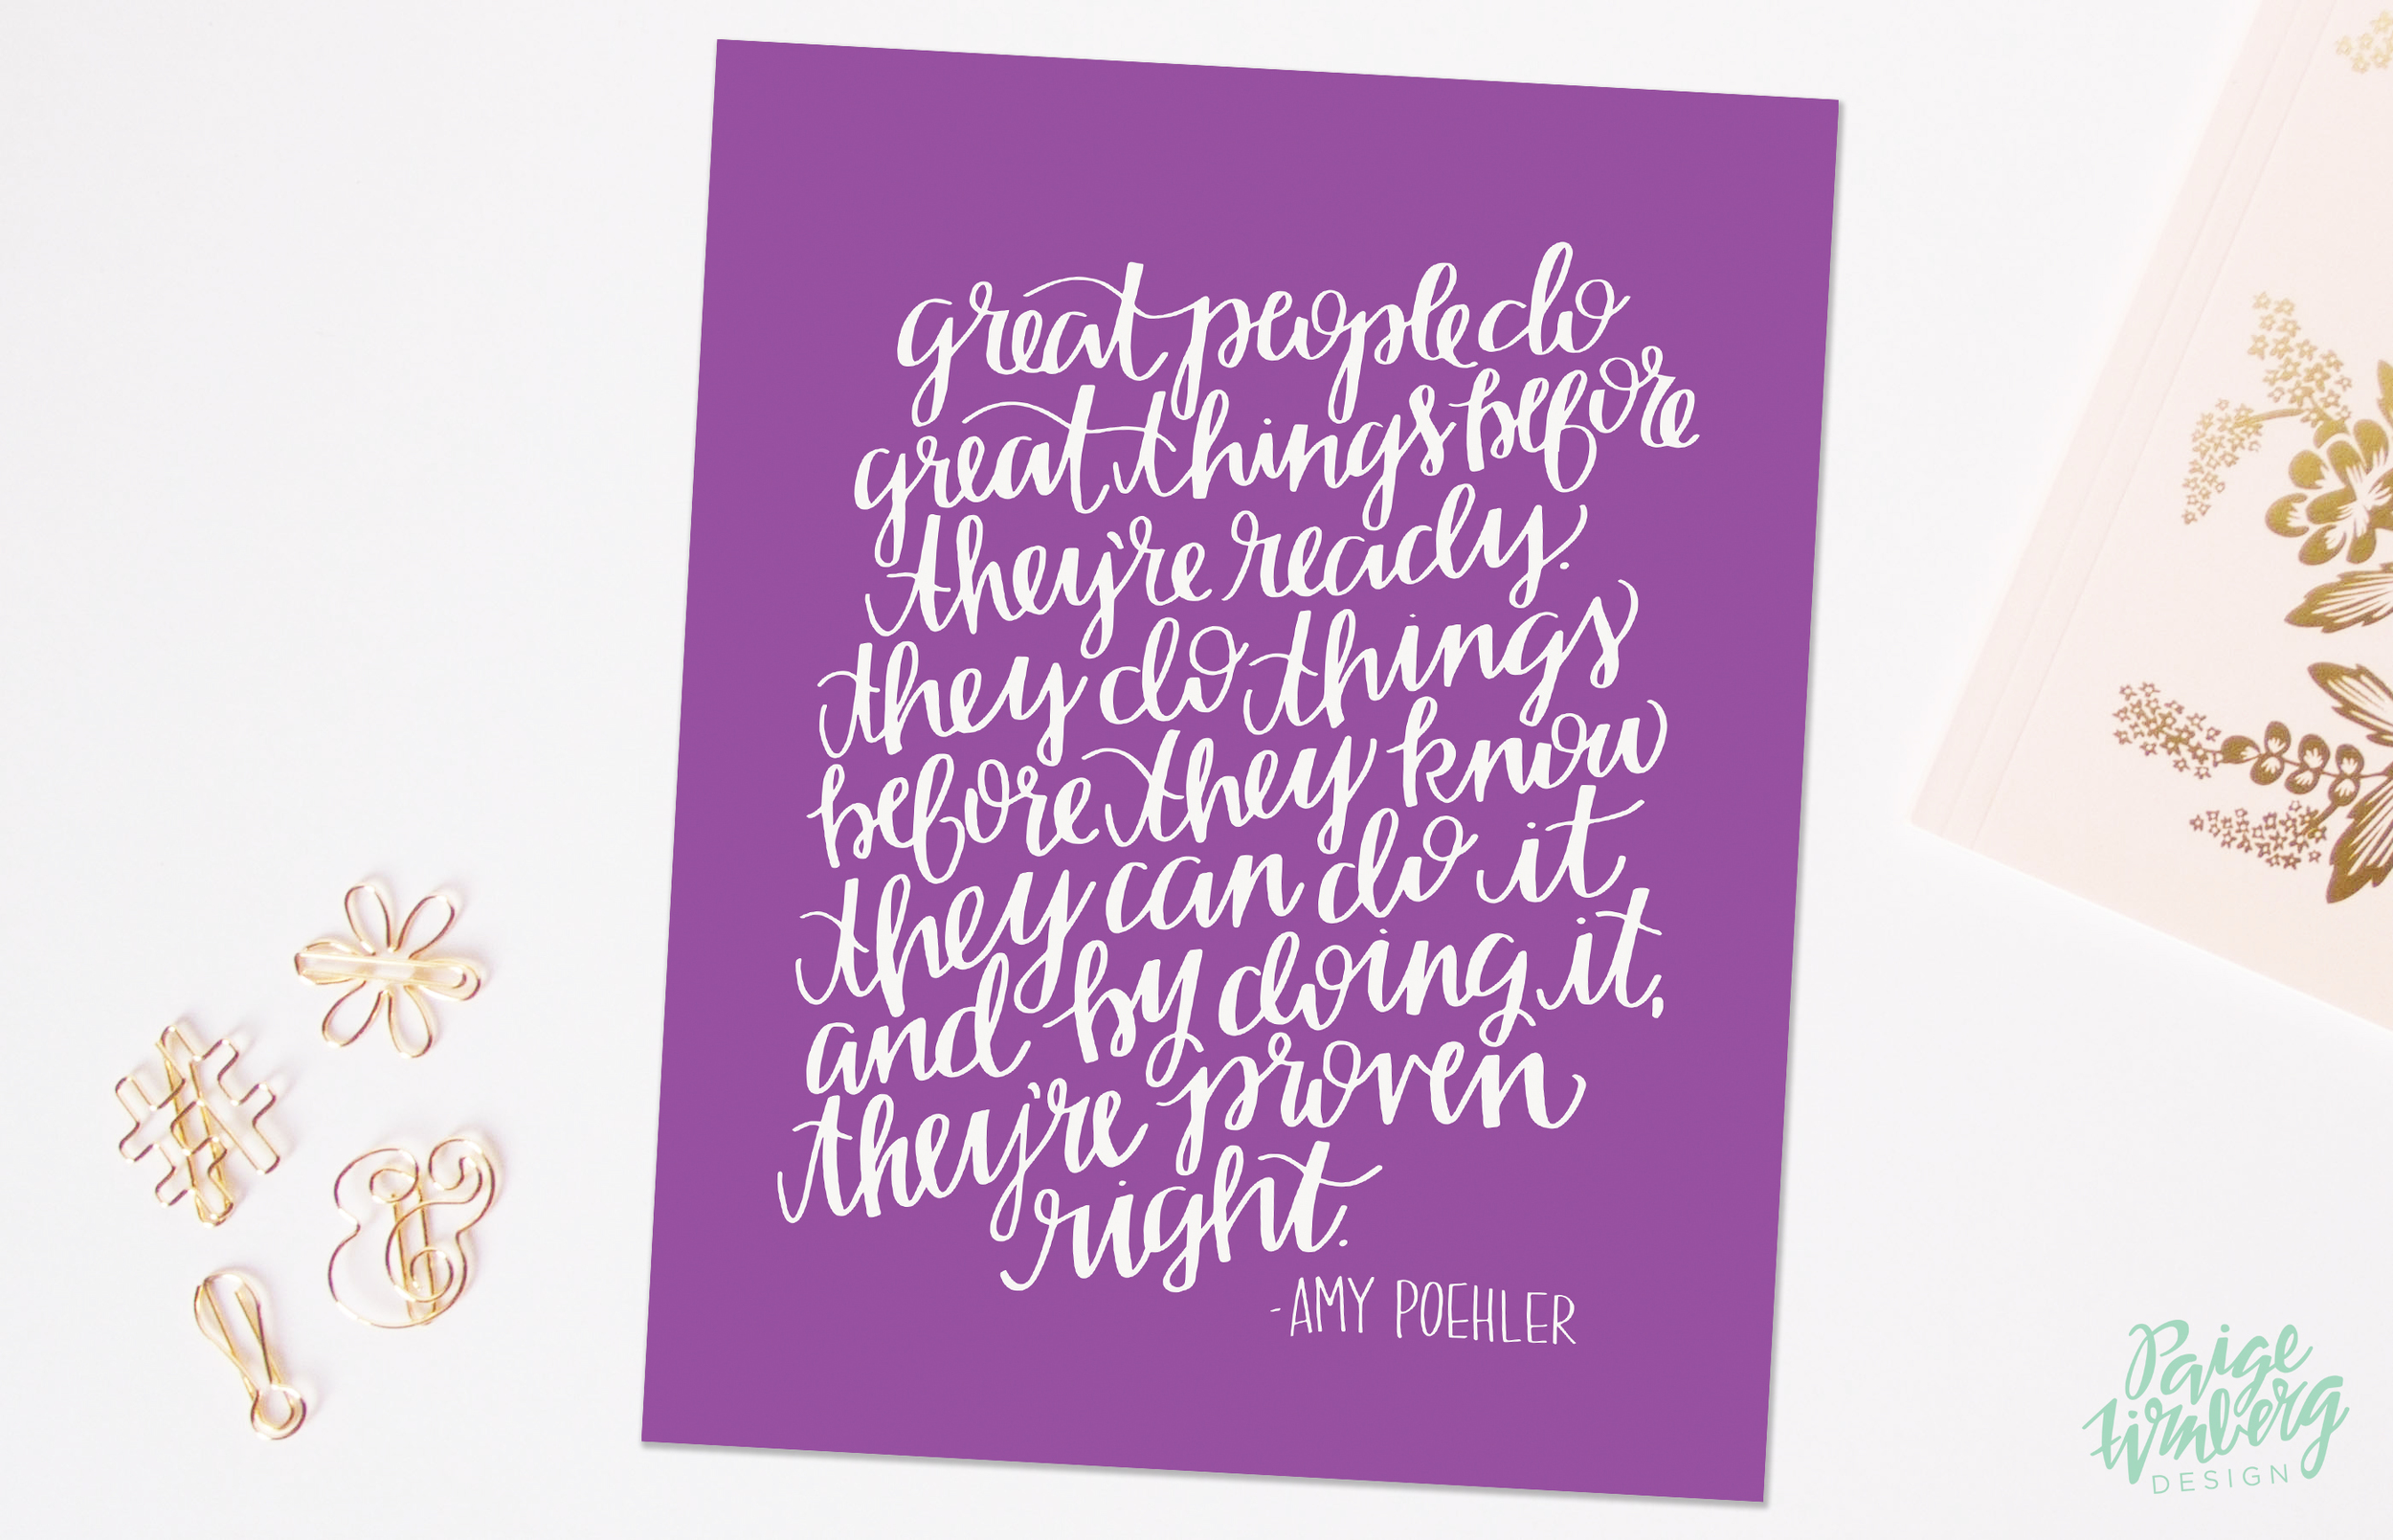 great people do
great things before
they're ready.
they do things
before they know
they can do it
and by doing it,
they're proven
right.
-AMY POEHLER
Paige
Firnberg
DESIGN